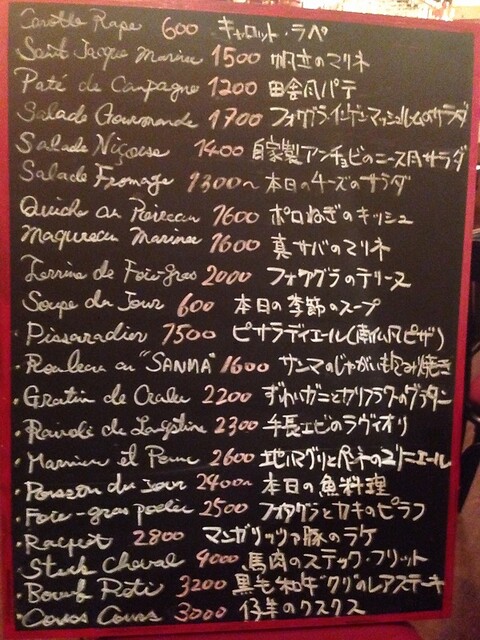 Carotte Rape 600 キャロット・ラペ
Saint Jacque Marinee 1500 帆立のマリネ
Paté de Canpagne 1200 田舎風パテ
Salade Gourmande 1700 フォアグラ・インゲン・マッシュルームのサラダ
Salade Niçoise 1400 自家製アンチョビのニース風サラダ
Salade Fromage 1300〜 本日のチーズのサラダ
Quiche au Poireau 1600 ポロねぎのキッシュ
Maquereau Marinee 1600 真サバのマリネ
Terrine de Foie-gras 2000 フォワグラのテリーヌ
Soupe du Jour 600 本日の季節のスープ
Pissaradier 1500 ピサラディエール(南仏風ピザ)
・Rouleau au "SANMA" 1600 サンマのじゃがいも包み焼き
・Gratin de Crabe 2200 ずわいガニとカリフラワーのグラタン
・Raviolé de Langstine 2300 手長エビのラヴィオリ
・2600 地ハマグリとペンネのマリニエール
・Poisson du Jour 2400〜 本日の魚料理
・Foie-gras poelée 2500 フォアグラとカキのピラフ
・2800 マンガリッツァ豚のラケ
・Steak Cheval 4000 馬肉のステック・フリット
・Boeuf Roti 3200 黒毛和牛"クリ"のレアステーキ
・Cous Cous 3000 仔羊のクスクス